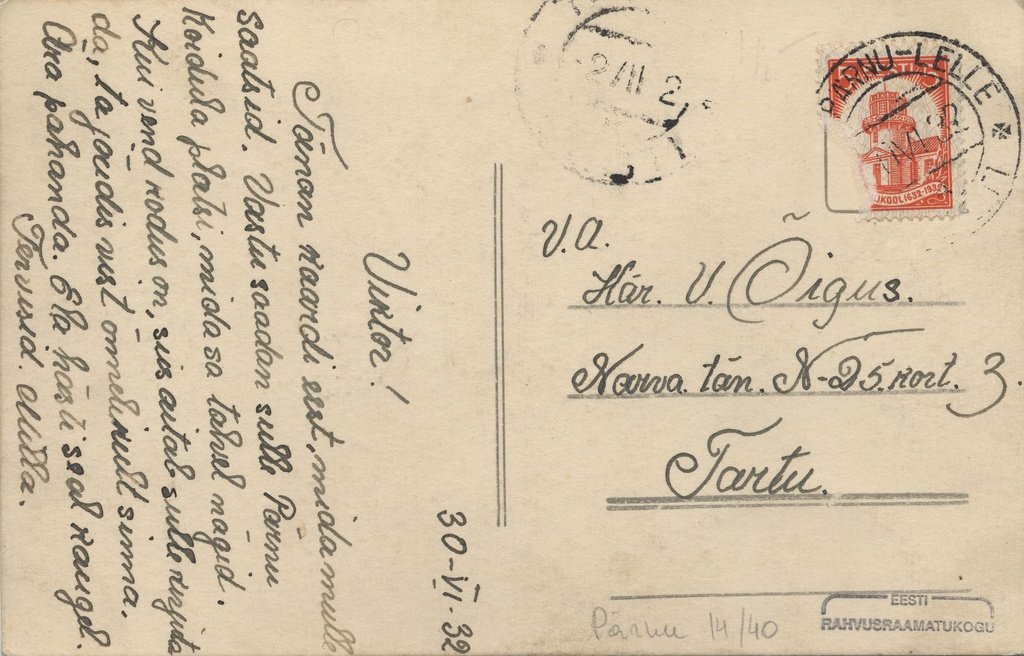 30-VI-32
Viktor!
Tänan kaardi eest, mida mulle
saatsid. Vastu saadan sulle Pärnu
Koidula platsi, mida sa tahel nägid.
Kui vend kodus on, siis aitab sulle kirjuta
da, ta jõudis vist õnnelikult sinna.
Ära pahanda. Ela hästi seal kaugel.
Tervisid. Milla.
PÄRNU-LELLE
VI 32
KOOL 1632-1932
2 VII
V.A.
Här. V. Õigus.
Narva tän. N-25. kort. 3.
Tartu.
Pärnu 14/40
EESTI
RAHVUSRAAMATUKOGU